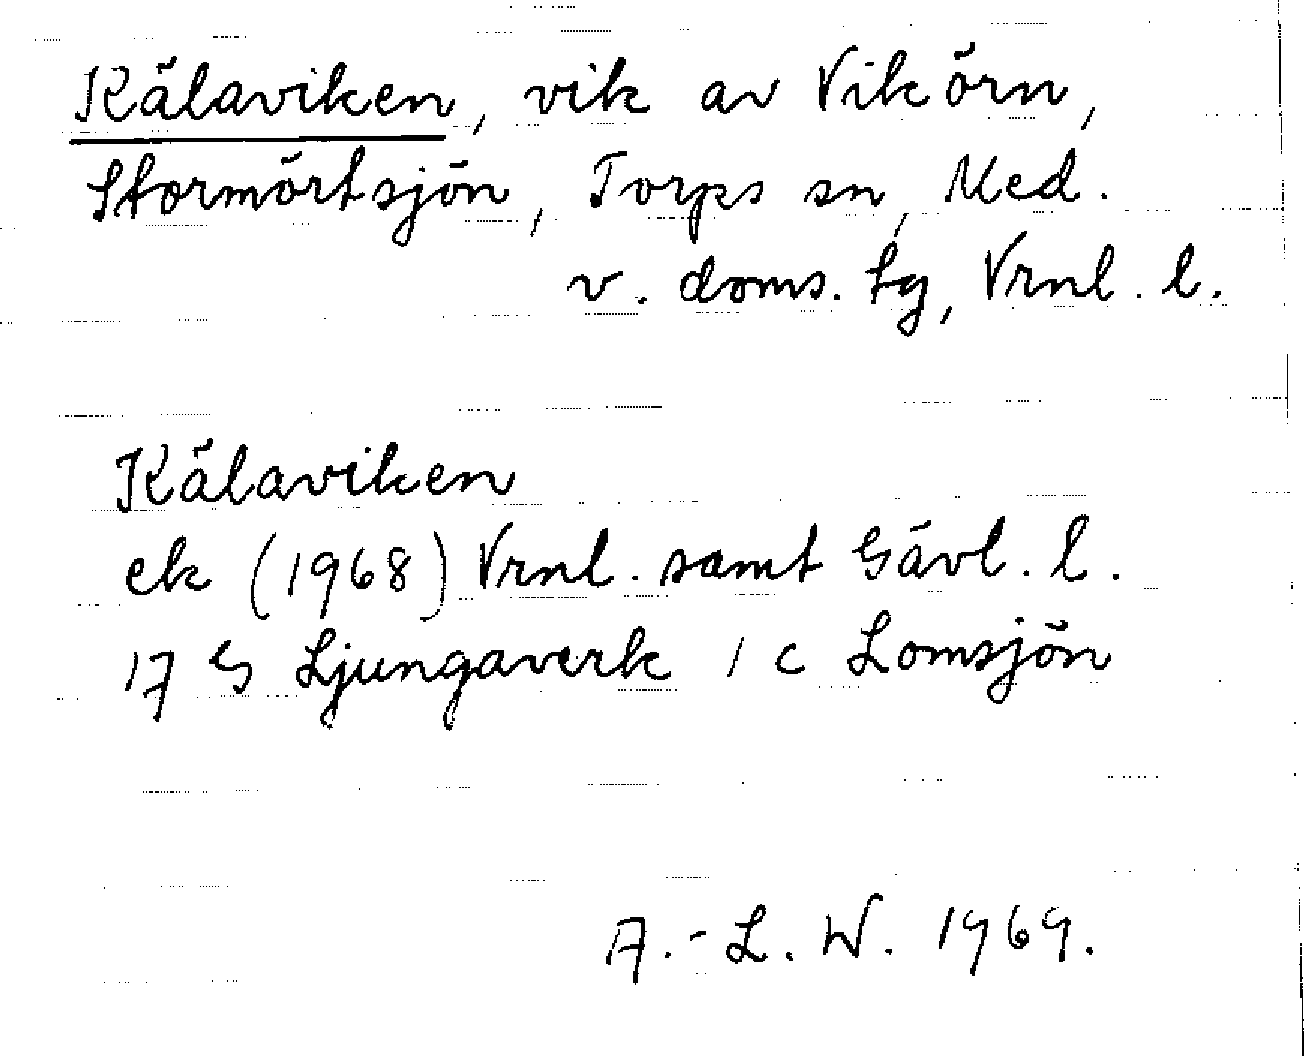 Kälaviken, vik av Vikörn,
Stormörtsjön, Torps sn, Med.
v. doms. tg, Vrnl. l.
Kälaviken
ek (1968) Vrnl. samt Gävl. l.
17 G Ljungaverk 1 c Lomsjön
A.-L. W. 1969.